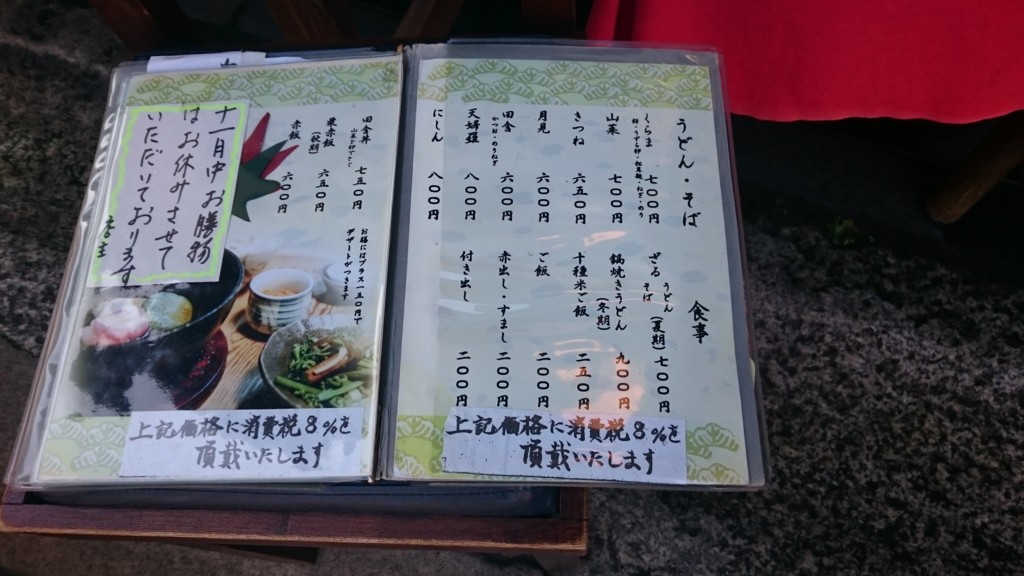 食事
うどん・そば
くらま 七〇〇円
山菜 七〇〇円
きつね 六五〇円
月見 六〇〇円
田舎 六〇〇円
かつお・のりねぎ
天婦羅 八〇〇円
にしん 八〇〇円
ざる うどん そば (夏期) 七〇〇円
鍋焼きうどん (冬期) 九〇〇円
十種米ご飯 二五〇円
ご飯 二〇〇円
赤出し・すまし 二〇〇円
付き出し 二〇〇円
上記価格に消費税8%を
頂戴いたします
田舎丼 七五〇円
栗赤飯 (秋期) 六五〇円
赤飯 六〇〇円
お膳にはプラス一五〇円で
デザートがつきます
十一月中お膳物
はお休みさせて
いただいております
店主
上記価格に消費税8%を
頂戴いたします